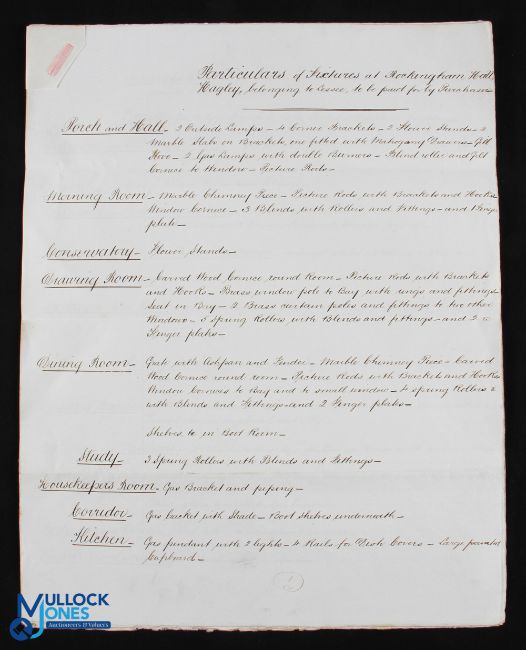 Particulars of Fixtures at Rockingham Hall
Hagley, belonging to Lessee, to be paid for by Purchaser
Porch and Hall - 2 Outside Lamps - 4 Corner Brackets - 2 Flower Stands - 2
Marble Slabs on Brackets one fitted with Mahogany Drawers - Gill
Stove - 2 Gas Lamps with double Burners - Blind roller and Gilt
Cornice to Window - Picture Rods -
Morning Room - Marble Chimney Piece - Picture Rods with Brackets and Hooks
Window Cornice - 3 Blinds with Rollers and Fittings - and 1 Finger
plate -
Conservatory - Flower Stands -
Drawing Room - Carved Wood Cornice round Room - Picture Rods with Brackets
and Hooks - Brass window pole to Bay with rings and fittings
Seat in Bay - 2 Brass curtain poles and fittings to two other
Windows - 5 Spring Rollers with Blinds and fittings - and 2
Finger plates -
Dining Room - Grate with Ashpan and Fender - Marble Chimney Piece - Carved
Wood Cornice round room - Picture Rods with Brackets and Hooks
Window Cornices to Bay and to small window - 4 Spring Rollers
with Blinds and Fittings - and 2 Finger plates -
Shelves to in Boot Room -
Study - 3 Spring Rollers with Blinds and Fittings -
Housekeepers Room - Gas Bracket and piping -
Corridor - Gas bracket with Shade - Boot shelves underneath -
Kitchen - Gas pendant with 2 lights - 4 Rails for Dish Covers - Large painted
Cupboard -
1
MULLOCK
JONES
Auctioneers & Valuers